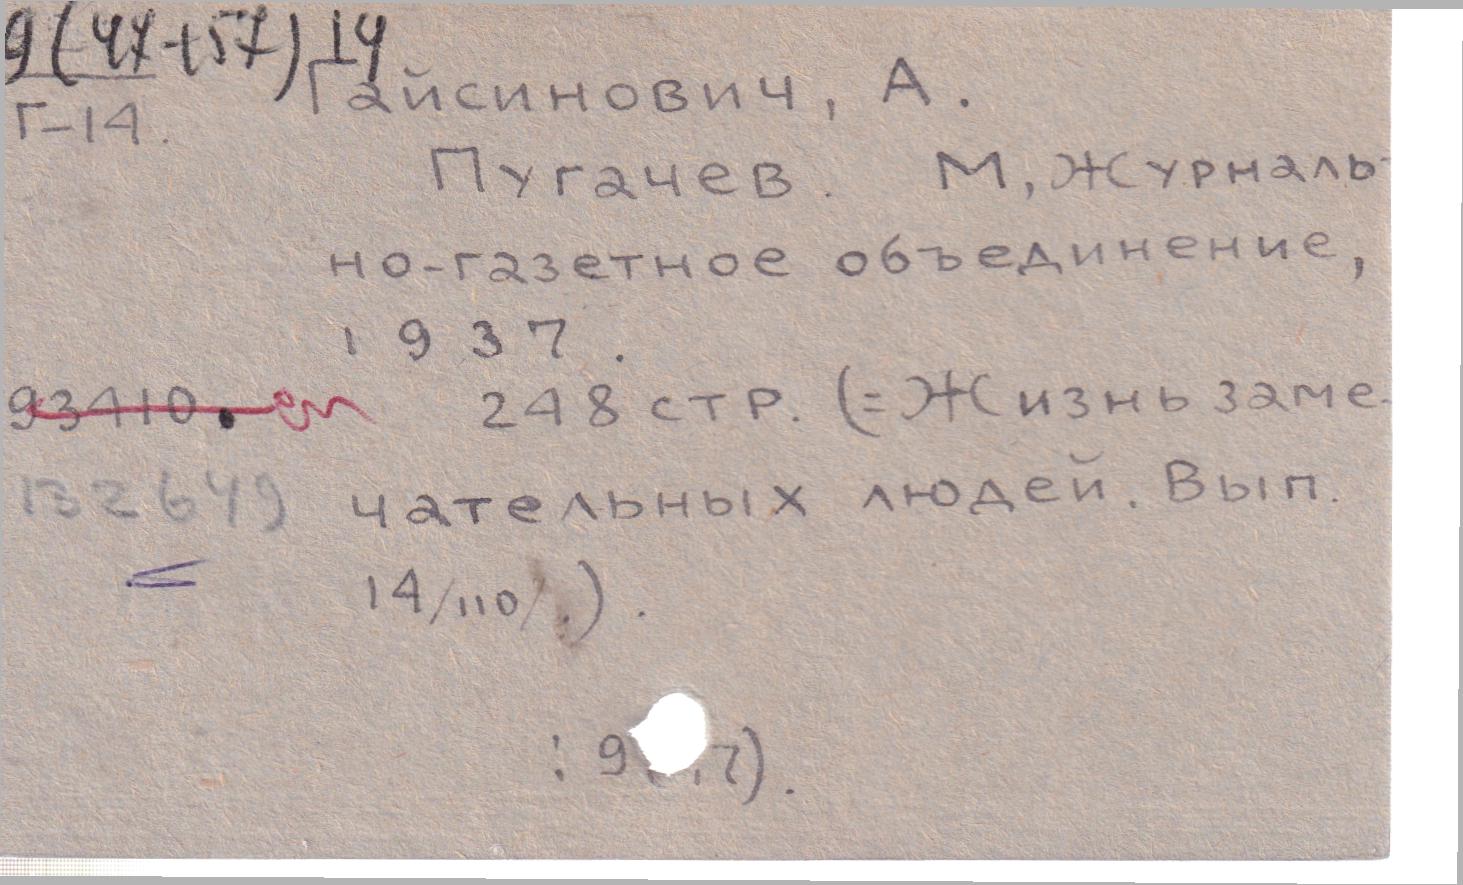 9(47+57)14
Г-14.
Гайсинович, А.
Пугачев. М, Журналь-
но-газетное объединение,
1937.
93410.
248 стр. (=Жизнь заме-
132649
чательных людей. Вып.
14/110/.).
: 9( 17).